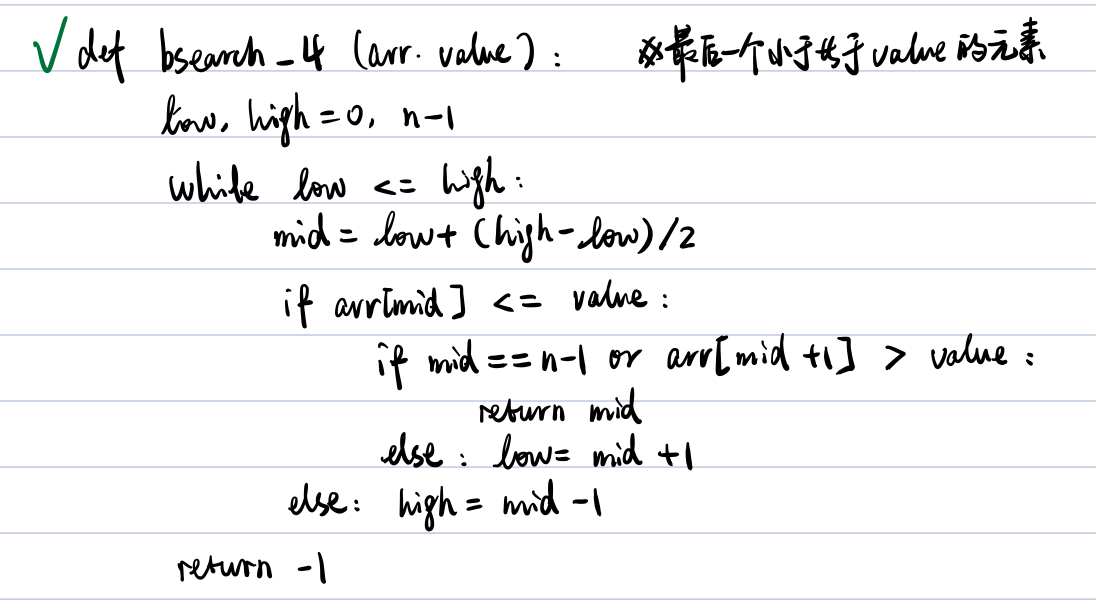 ✓ def bsearch_4 (arr. value): ※最后一个小于等于value的元素
low, high = 0, n-1
while low <= high:
mid = low + (high-low)/2
if arr[mid] <= value:
if mid == n-1 or arr[mid +1] > value:
return mid
else: low = mid +1
else: high = mid -1
return -1